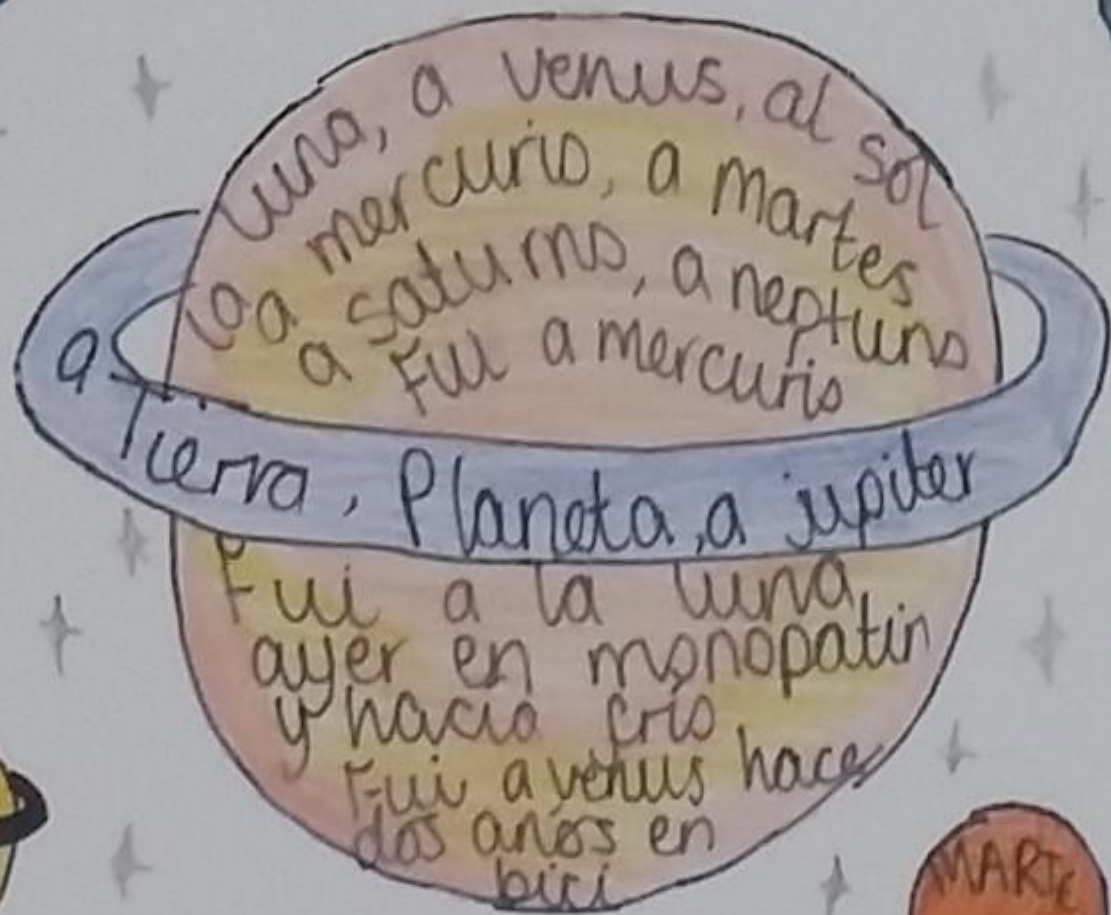 luna, a venus, al sol
la mercurio, a martes
a a saturno, a neptuno
Fui a mercurio
a Tierra, Planeta, a jupiter
Fui a la luna
ayer en monopatin
y hacia frio
Fui a venus hace
dos años en
bici
MARTE